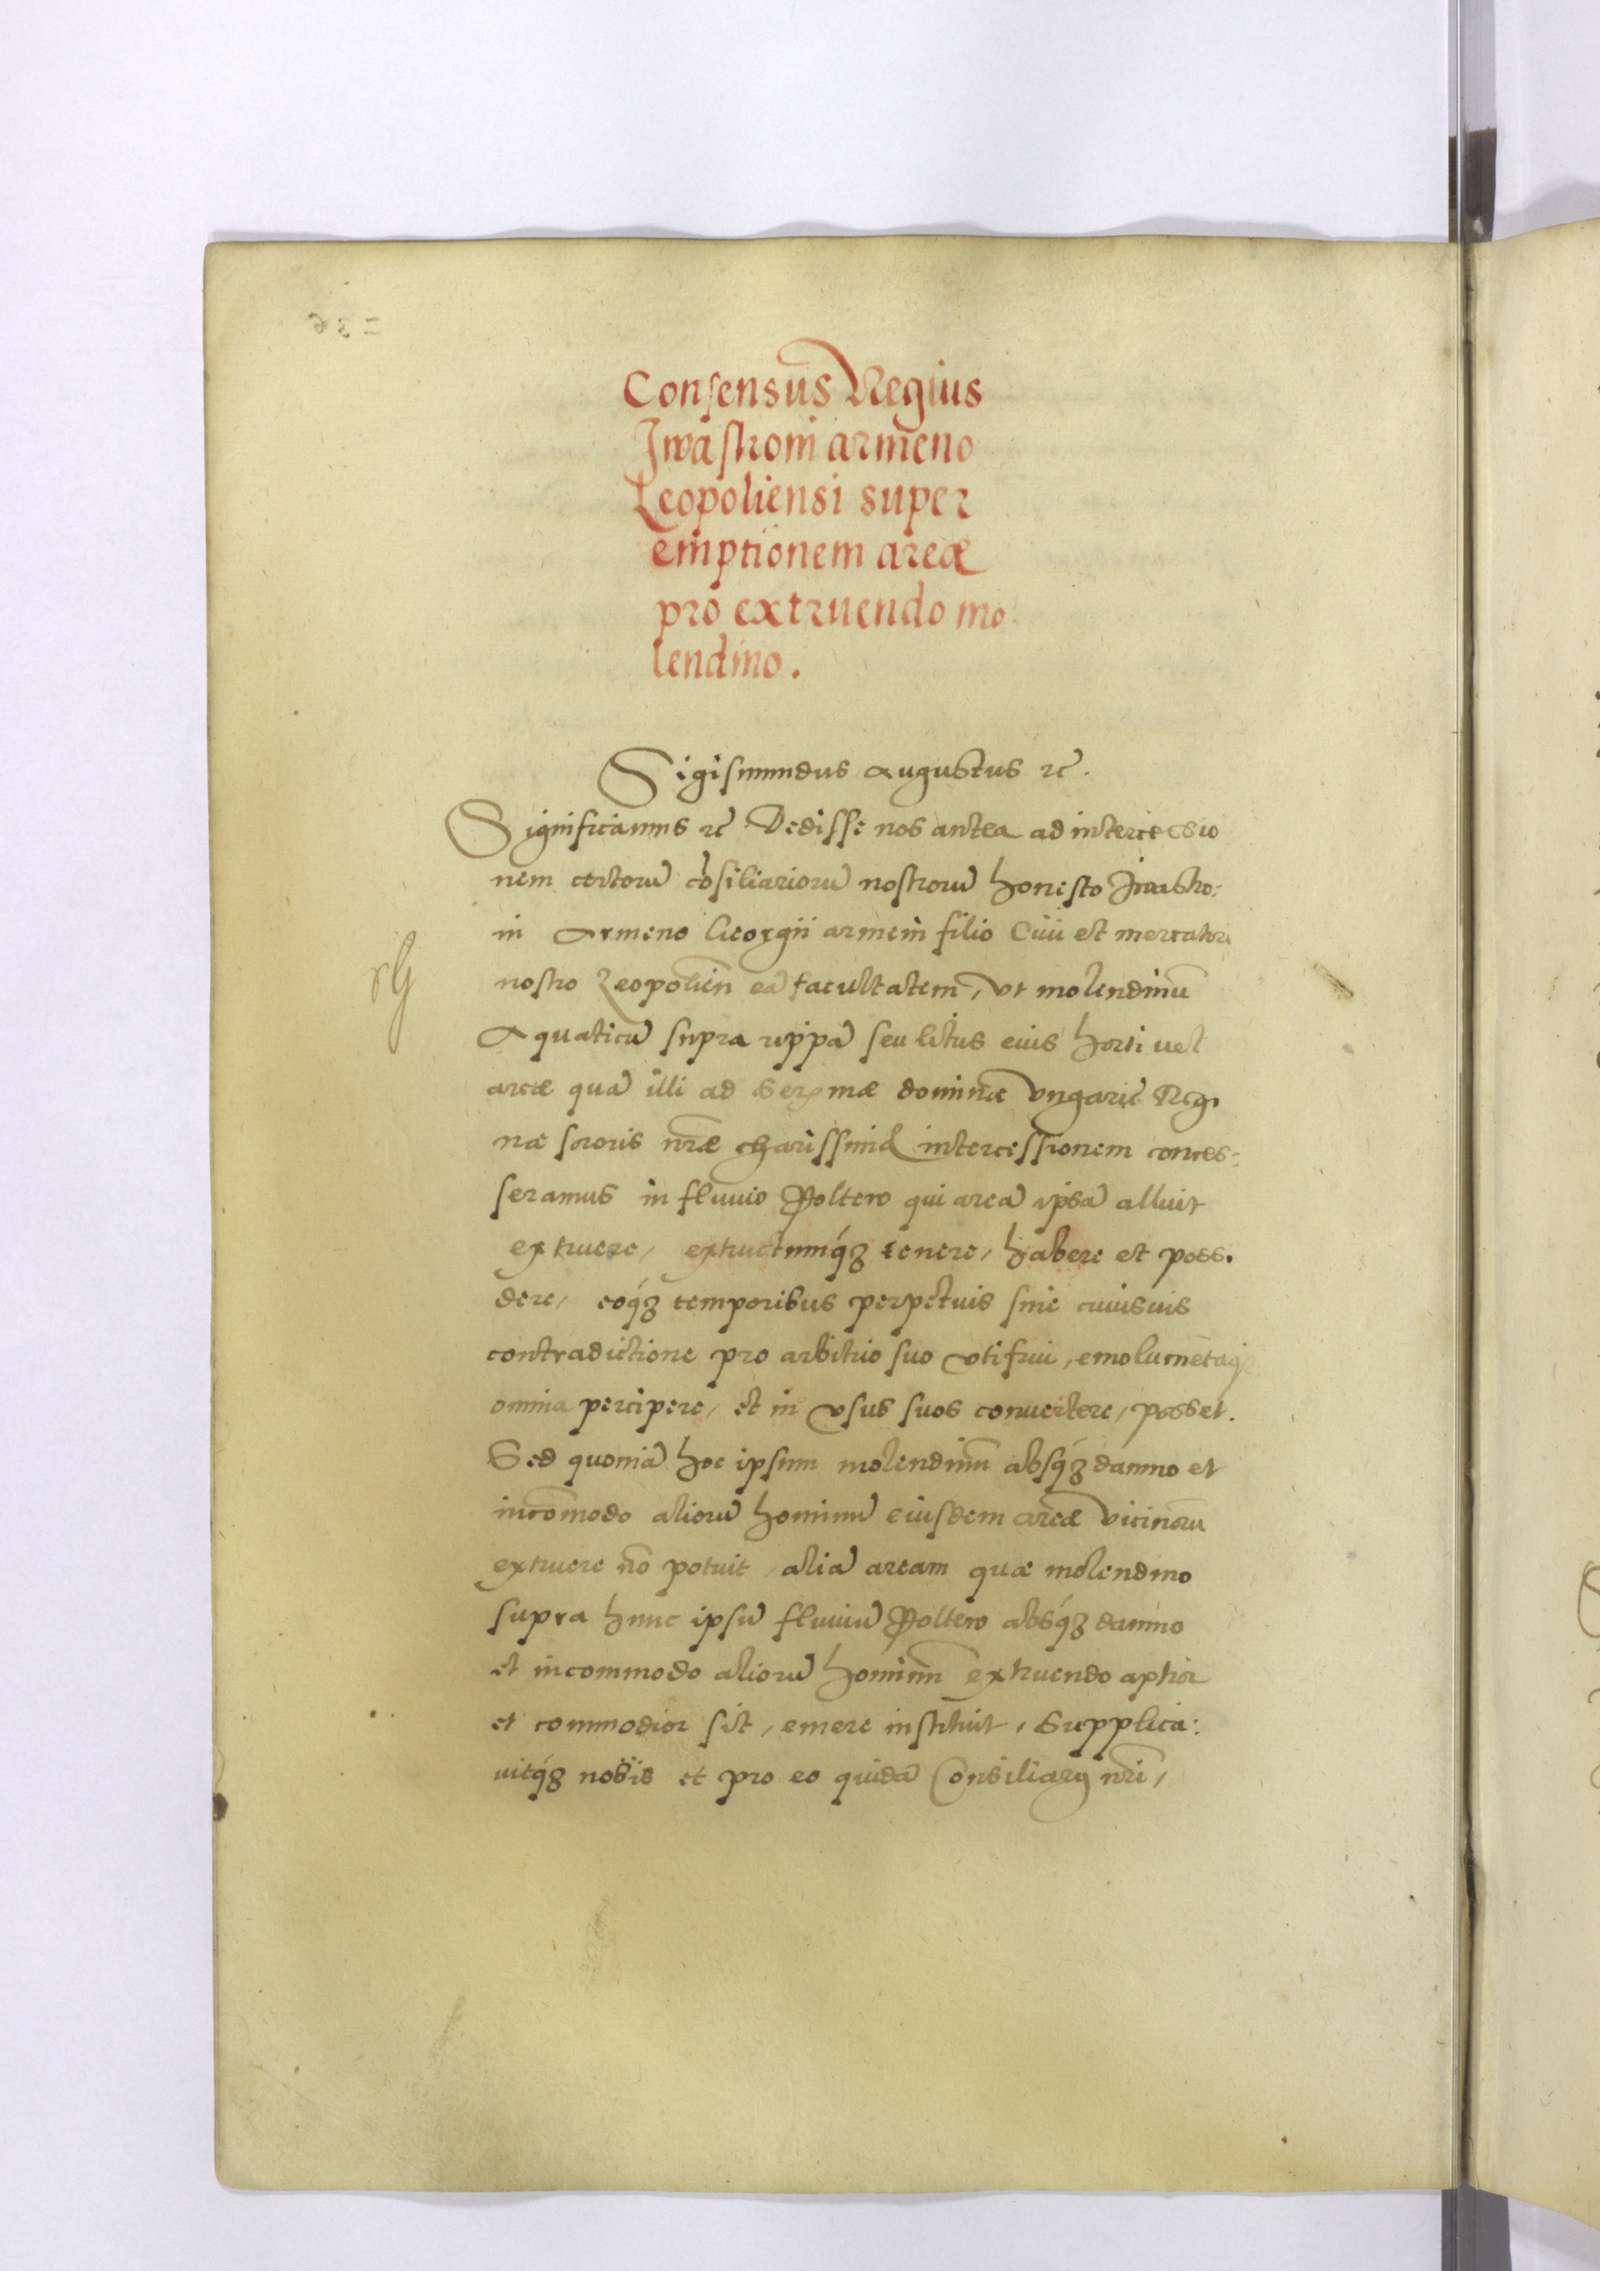 Consensus Regius
Jwaskoni armeno
Leopoliensi super
emptionem areæ
pro extruendo mo
lendino.
Sigismundus Augustus etc.
Significamus etc Dedisse nos antea ad intercessio
nem certorū cōsiliariorū nostrorū honesto Iwasko:
ni Armeno Georgii armeni filio Civi et mercatori
nostro Leopolien̄ eā facultatem, vt molendinū
Aquaticū supra rippā seu litus eius horti vel
areæ quā illi ad Ser:mæ dominæ Vngarie Regi
næ sororis nr̄æ charissimæ intercessionem conces:
seramus in fluuio Poltew qui areā ipsā alluit
extruere, extructumq́ꝫ tenere, habere et possi
dere, eoq́ꝫ temporibus perpetuis sine cuiusuis
contradictione pro arbitrio suo vtifrui, emolumētaqꝫ
omnia percipere, et in vsus suos conuertere, posset.
Sed quoniā hoc ipsum molendinū absq́ꝫ damno et
incōmodo aliorū hominū eiusdem areæ vicinorū
extruere nō potuit, aliā aream quæ molendino
supra hunc ipsū fluuiū Poltew absq́ꝫ damno
et incommodo aliorū hominū extruendo aptior
et commodior sit, emere instituit, Supplica:
uitq́ꝫ nobis et pro eo quidā Consiliarij nr̄i,